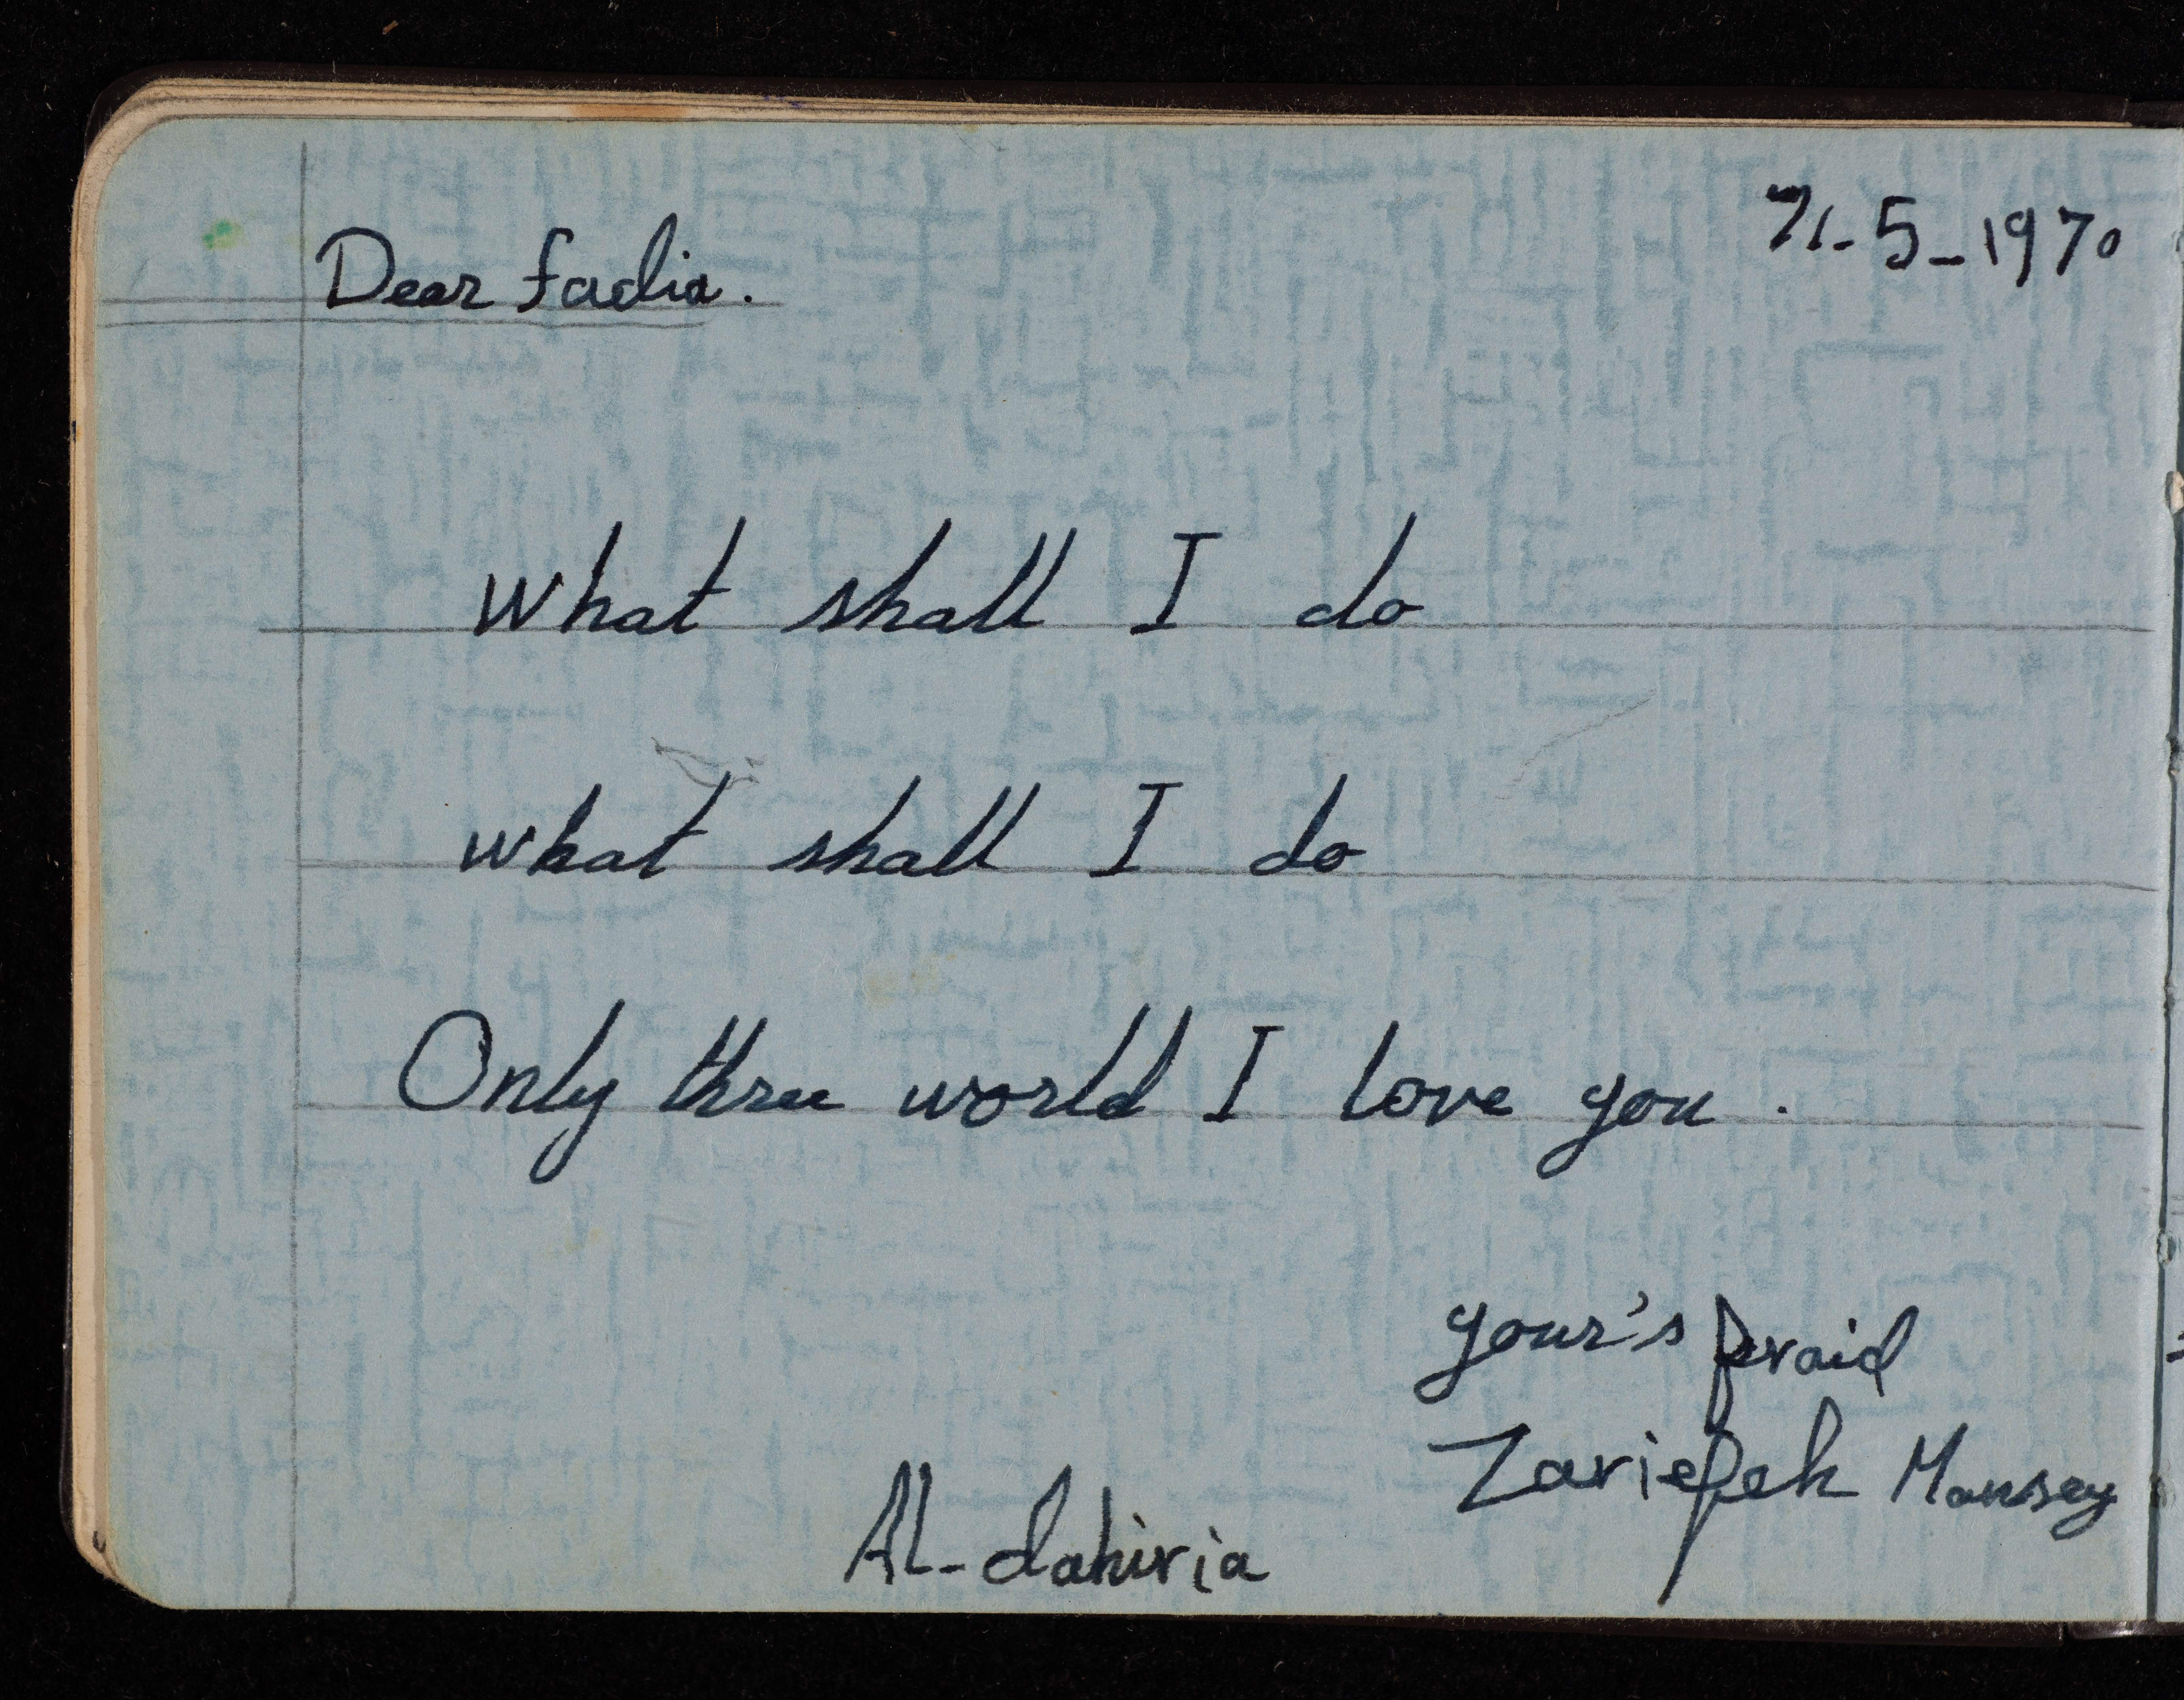 21-5-1970
Dear fadia.
What shall I do
what shall I do
Only three world I love you.
your's fraid
Zariefeh Mansey
Al-dahiria